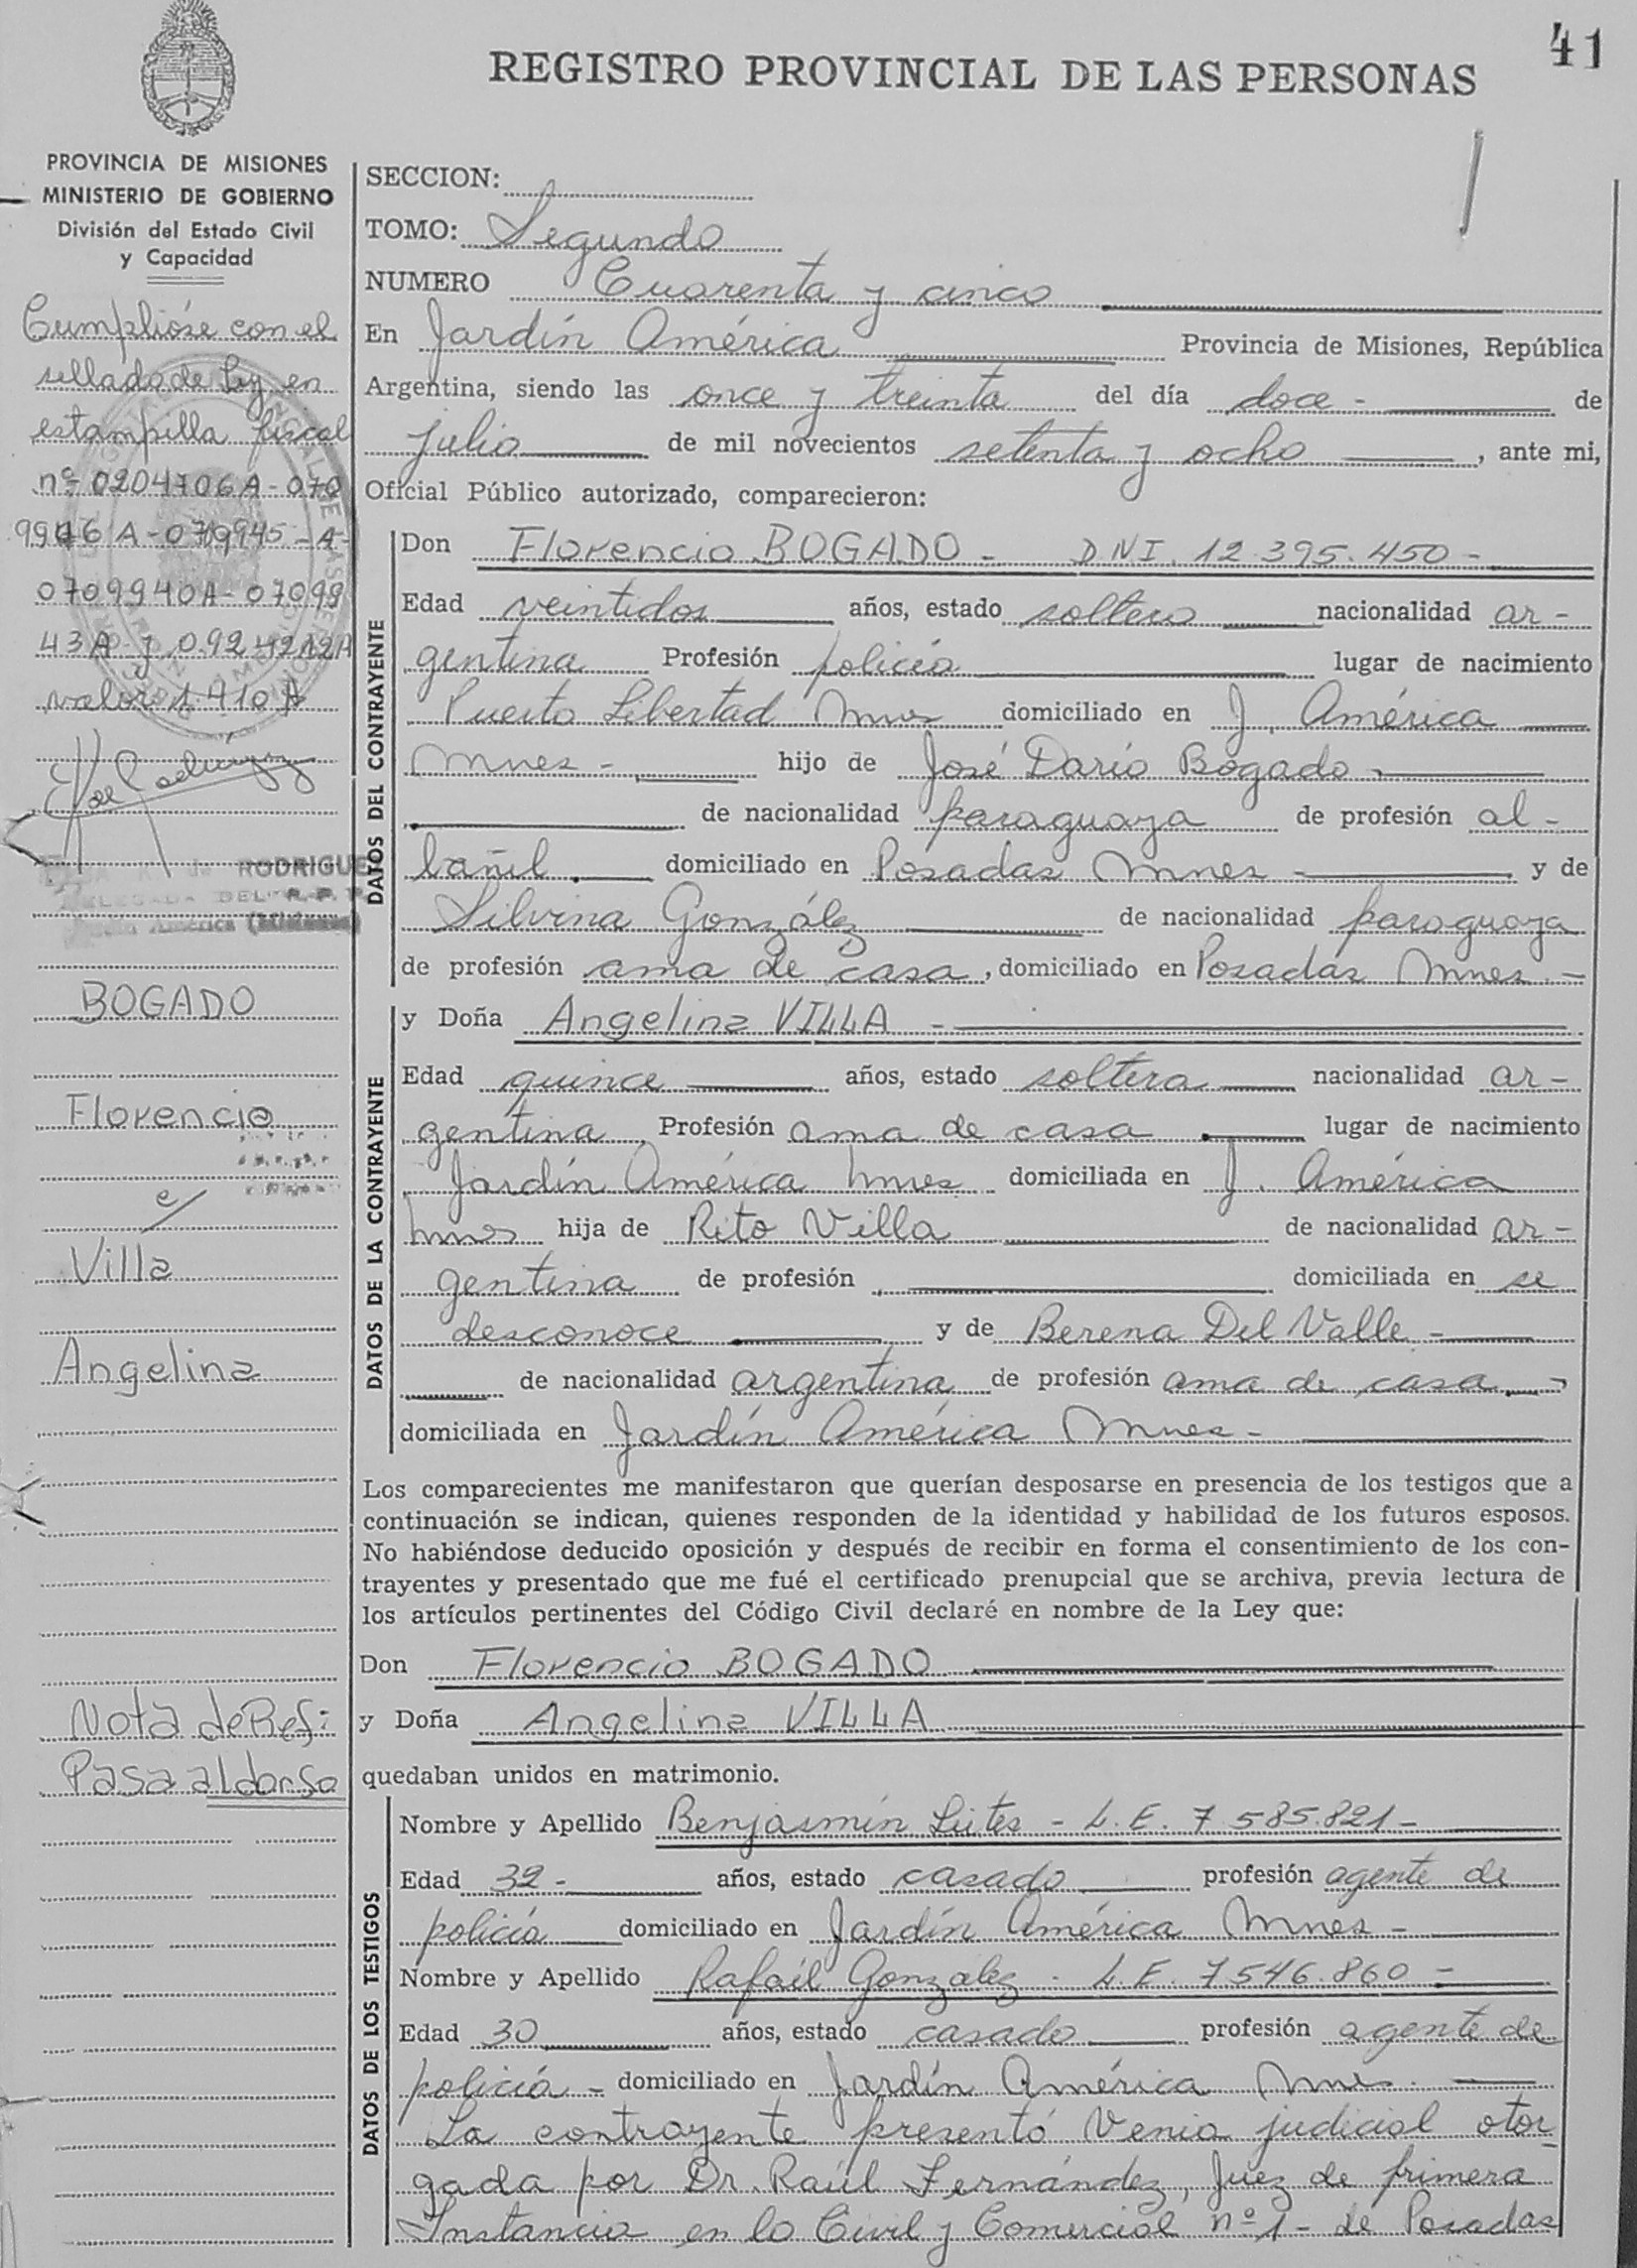 41
REGISTRO PROVINCIAL DE LAS PERSONAS
PROVINCIA DE MISIONES
MINISTERIO DE GOBIERNO
División del Estado Civil
y Capacidad
Cumplióse con el
sellado de Ley en
estampilla fiscal
nº 0204706A-070
9946 A-0709945-A-
0709940A-07099
43A y 0924212A
valor 1.410 A
RODRIGUE
DELEGADA DEL R.P.P.
Jardín América (Misiones)
BOGADO
Florencio
c/
Villa
Angelina
Nota de Ref:
Pasa al dorso
SECCION:
TOMO: Segundo
NUMERO Cuarenta y cinco
En Jardín América Provincia de Misiones, República
Argentina, siendo las once y treinta del día doce - de
julio de mil novecientos setenta y ocho , ante mi,
Oficial Público autorizado, comparecieron:
DATOS DEL CONTRAYENTE
Don Florencio BOGADO - D.N.I. 12.395.450 -
Edad veintidos años, estado soltero nacionalidad ar-
gentina Profesión policía lugar de nacimiento
Puerto Libertad Mnes domiciliado en J. América
Mnes - hijo de José Darío Bogado -
de nacionalidad paraguaya de profesión al-
bañil domiciliado en Posadas Mnes - y de
Silvina González de nacionalidad paraguaya
de profesión ama de casa, domiciliado en Posadas Mnes. -
DATOS DE LA CONTRAYENTE
y Doña Angelina VILLA -
Edad quince años, estado soltera nacionalidad ar-
gentina Profesión ama de casa lugar de nacimiento
Jardín América Mnes domiciliada en J. América
Mnes hija de Rito Villa de nacionalidad ar-
gentina de profesión domiciliada en se
desconoce y de Berena Del Valle -
de nacionalidad argentina de profesión ama de casa -
domiciliada en Jardín América Mnes -
Los comparecientes me manifestaron que querían desposarse en presencia de los testigos que a
continuación se indican, quienes responden de la identidad y habilidad de los futuros esposos.
No habiéndose deducido oposición y después de recibir en forma el consentimiento de los con-
trayentes y presentado que me fué el certificado prenupcial que se archiva, previa lectura de
los artículos pertinentes del Código Civil declaré en nombre de la Ley que:
Don Florencio BOGADO
y Doña Angelina VILLA
quedaban unidos en matrimonio.
DATOS DE LOS TESTIGOS
Nombre y Apellido Benjasmín Lutes - L.E. 7.585.821 -
Edad 32 - años, estado casado profesión agente de
policía domiciliado en Jardín América Mnes -
Nombre y Apellido Rafaél Gonzalez - L.E. 7.546.860 -
Edad 30 años, estado casado profesión agente de
policía - domiciliado en Jardín América Mnes.
La contrayente presentó Venia judicial otor
gada por Dr. Raúl Fernández, Juez de primera
Instancia en lo Civil y Comercial nº 1 - de Posadas